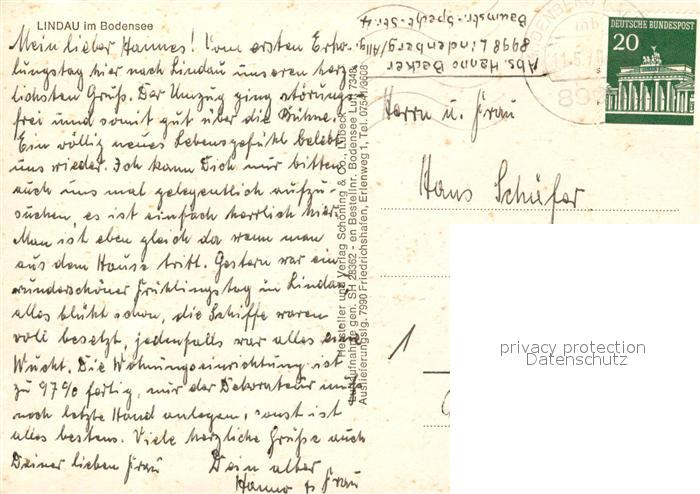 LINDAU im Bodensee
Mein lieber Hannes! Vom ersten Erho-
lungstag hier nach Lindau unseren herz-
lichsten Gruß. Der Umzug ging störungs-
frei und somit gut über die Bühne.
Ein völlig neues Lebensgefühl belebt
uns wieder. Ich kann Dich nur bitten
auch uns mal gelegentlich aufzu-
suchen, es ist einfach herrlich hier.
Man ist eben gleich da wenn man
aus dem Hause tritt. Gestern war ein
wunderschöner Frühlingstag in Lindau,
alles blüht schon, die Schiffe waren
voll besetzt, jedenfalls war alles eine
Wucht. Die Wohnungseinrichtung ist
zu 97% fertig, nur der Dekorateur muß
noch letzte Hand anlegen, sonst ist
alles bestens. Viele herzliche Grüße auch
Deiner lieben Frau Dein alter
Hanno u. Frau
Hersteller und Verlag Schöning & Co., Lübeck
Luftaufnahme gen. SH 28362 - en Bestellnr. Bodensee Lu 7348
Auslieferungslg. 7990 Friedrichshafen, Erlenweg 1, Tel. 07541/3608
Abs. Hanno Becker
8998 Lindenberg/Allg.
Baumstr.-Specht-Str. 4
DEUTSCHE BUNDESPOST
20
Herrn u. Frau
Hans Schäfer
1
privacy protection
Datenschutz